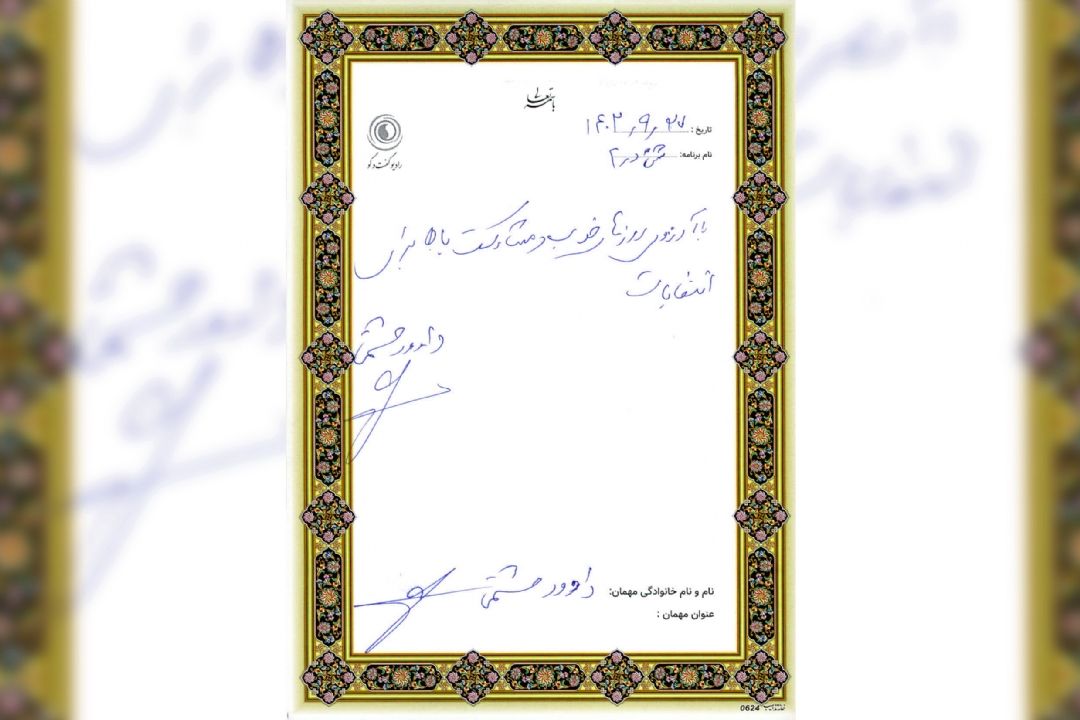 باسمه تعالی
تاریخ: ۱۴۰۲/۹/۲۷
رادیو گفت و گو
نام برنامه:
با آرزوی روزهای خوب و مشارکت بالا برای
انتخابات
داوود حشمتی
نام و نام خانوادگی مهمان: داوود حشمتی
عنوان مهمان :
0624